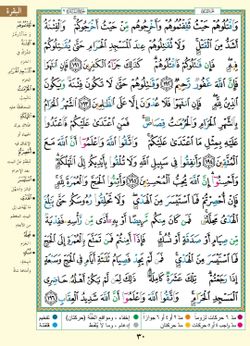 البقرة
وَٱقۡتُلُوهُمۡ حَيۡثُ ثَقِفۡتُمُوهُمۡ وَأَخۡرِجُوهُم مِّنۡ حَيۡثُ أَخۡرَجُوكُمۡۚ وَٱلۡفِتۡنَةُ
أَشَدُّ مِنَ ٱلۡقَتۡلِۚ وَلَا تُقَٰتِلُوهُمۡ عِندَ ٱلۡمَسۡجِدِ ٱلۡحَرَامِ حَتَّىٰ يُقَٰتِلُوكُمۡ
فِيهِۖ فَإِن قَٰتَلُوكُمۡ فَٱقۡتُلُوهُمۡۗ كَذَٰلِكَ جَزَآءُ ٱلۡكَٰفِرِينَ ١٩١ فَإِنِ ٱنتَهَوۡاْ
فَإِنَّ ٱللَّهَ غَفُورٞ رَّحِيمٞ ١٩٢ وَقَٰتِلُوهُمۡ حَتَّىٰ لَا تَكُونَ فِتۡنَةٞ وَيَكُونَ
ٱلدِّينُ لِلَّهِۖ فَإِنِ ٱنتَهَوۡاْ فَلَا عُدۡوَٰنَ إِلَّا عَلَى ٱلظَّٰلِمِينَ ١٩٣ ٱلشَّهۡرُ ٱلۡحَرَامُ
بِٱلشَّهۡرِ ٱلۡحَرَامِ وَٱلۡحُرُمَٰتُ قِصَاصٞۚ فَمَنِ ٱعۡتَدَىٰ عَلَيۡكُمۡ فَٱعۡتَدُواْ
عَلَيۡهِ بِمِثۡلِ مَا ٱعۡتَدَىٰ عَلَيۡكُمۡۚ وَٱتَّقُواْ ٱللَّهَ وَٱعۡلَمُوٓاْ أَنَّ ٱللَّهَ مَعَ
ٱلۡمُتَّقِينَ ١٩٤ وَأَنفِقُواْ فِي سَبِيلِ ٱللَّهِ وَلَا تُلۡقُواْ بِأَيۡدِيكُمۡ إِلَى ٱلتَّهۡلُكَةِ
وَأَحۡسِنُوٓاْۚ إِنَّ ٱللَّهَ يُحِبُّ ٱلۡمُحۡسِنِينَ ١٩٥ وَأَتِمُّواْ ٱلۡحَجَّ وَٱلۡعُمۡرَةَ
لِلَّهِۚ فَإِنۡ أُحۡصِرۡتُمۡ فَمَا ٱسۡتَيۡسَرَ مِنَ ٱلۡهَدۡيِۖ وَلَا تَحۡلِقُواْ رُءُوسَكُمۡ حَتَّىٰ بَلُغَ
ٱلۡهَدۡيُ مَحِلَّهُۥۚ فَمَن كَانَ مِنكُم مَّرِيضًا أَوۡ بِهِۦٓ أَذٗى مِّن رَّأۡسِهِۦ فَفِدۡيَةٞ
مِّن صِيَامٍ أَوۡ صَدَقَةٍ أَوۡ نُسُكٖۚ فَإِذَآ أَمِنتُمۡ فَمَن تَمَتَّعَ بِٱلۡعُمۡرَةِ إِلَى ٱلۡحَجِّ
فَمَا ٱسۡتَيۡسَرَ مِنَ ٱلۡهَدۡيِۚ فَمَن لَّمۡ يَجِدۡ فَصِيَامُ ثَلَٰثَةِ أَيَّامٖ فِي ٱلۡحَجِّ وَسَبۡعَةٍ
إِذَا رَجَعۡتُمۡۗ تِلۡكَ عَشَرَةٞ كَامِلَةٞۗ ذَٰلِكَ لِمَن لَّمۡ يَكُنۡ أَهۡلُهُۥ حَاضِرِي
ٱلۡمَسۡجِدِ ٱلۡحَرَامِۚ وَٱتَّقُواْ ٱللَّهَ وَٱعۡلَمُوٓاْ أَنَّ ٱللَّهَ شَدِيدُ ٱلۡعِقَابِ ١٩٦
٣٠